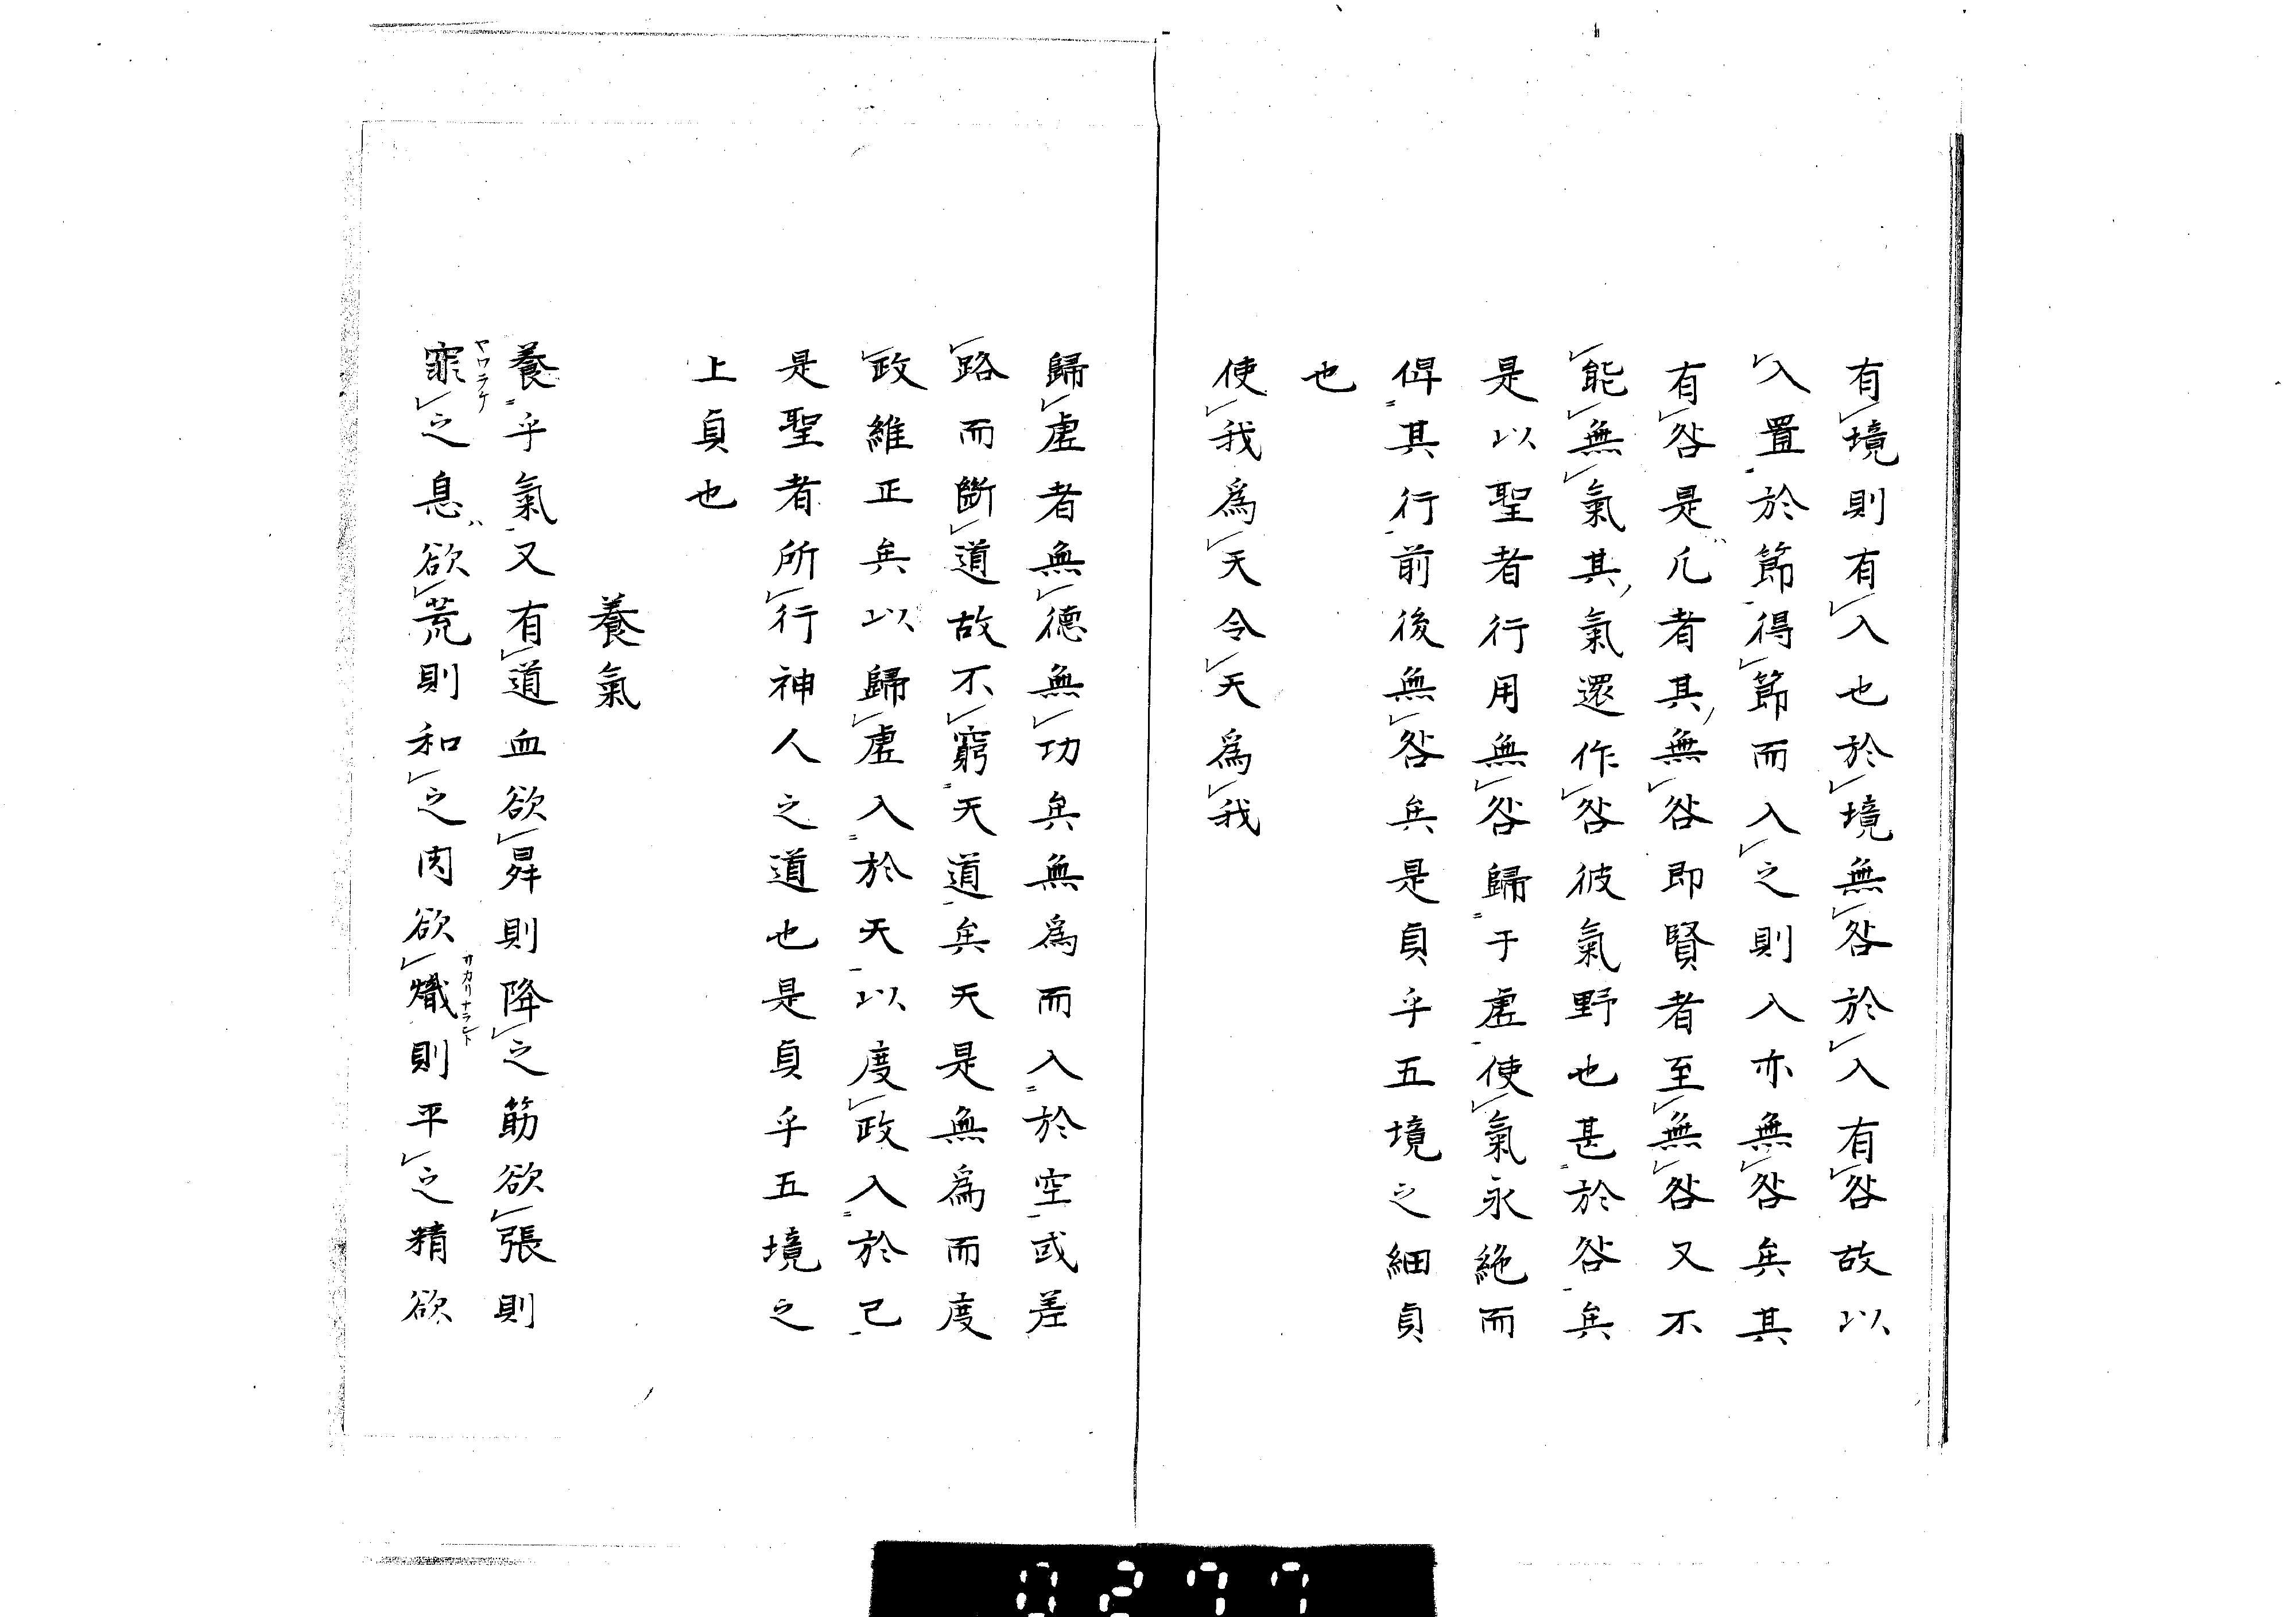 有境則有入也於境無咎於入有咎故以
入置於節得節而入之則入亦無咎矣其
有咎是凡者其無咎即賢者至無咎又不
能無氣其氣還作咎彼氣野也甚於咎矣
是以聖者行用無咎歸于虛使氣永絶而
俾其行前後無咎矣是貞乎五境之細貞
也
使我爲天令天爲我
歸虛者無德無功矣無爲而入於空或差
路而斷道故不窮天道矣天是無爲而度
政維正矣以歸虛入於天以度政入於己
是聖者所行神人之道也是貞乎五境之
上貞也
養氣
養乎氣又有道血欲昇則降之筋欲張則
之息欲荒則和之肉欲熾則平之精欲
サカリナラント
0277